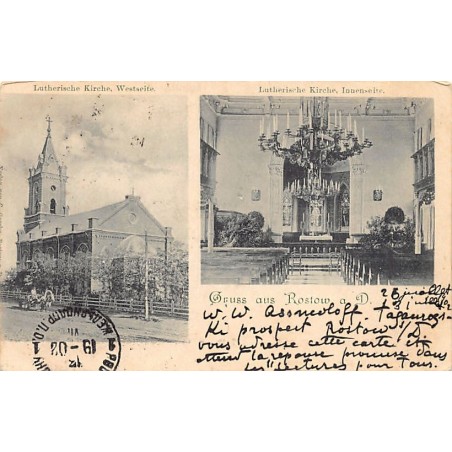 Lutherische Kirche, Westseite.
Lutherische Kirche, Innenseite.
Gruss aus Rostow a. D.
26 juillet
W. W. Assmoloff. Taganrogs-
Ki prospect Rostow s/D.
vous adresse cette carte et
attend la réponse promise dans
les "Lectures pour Tous.
19 - 02